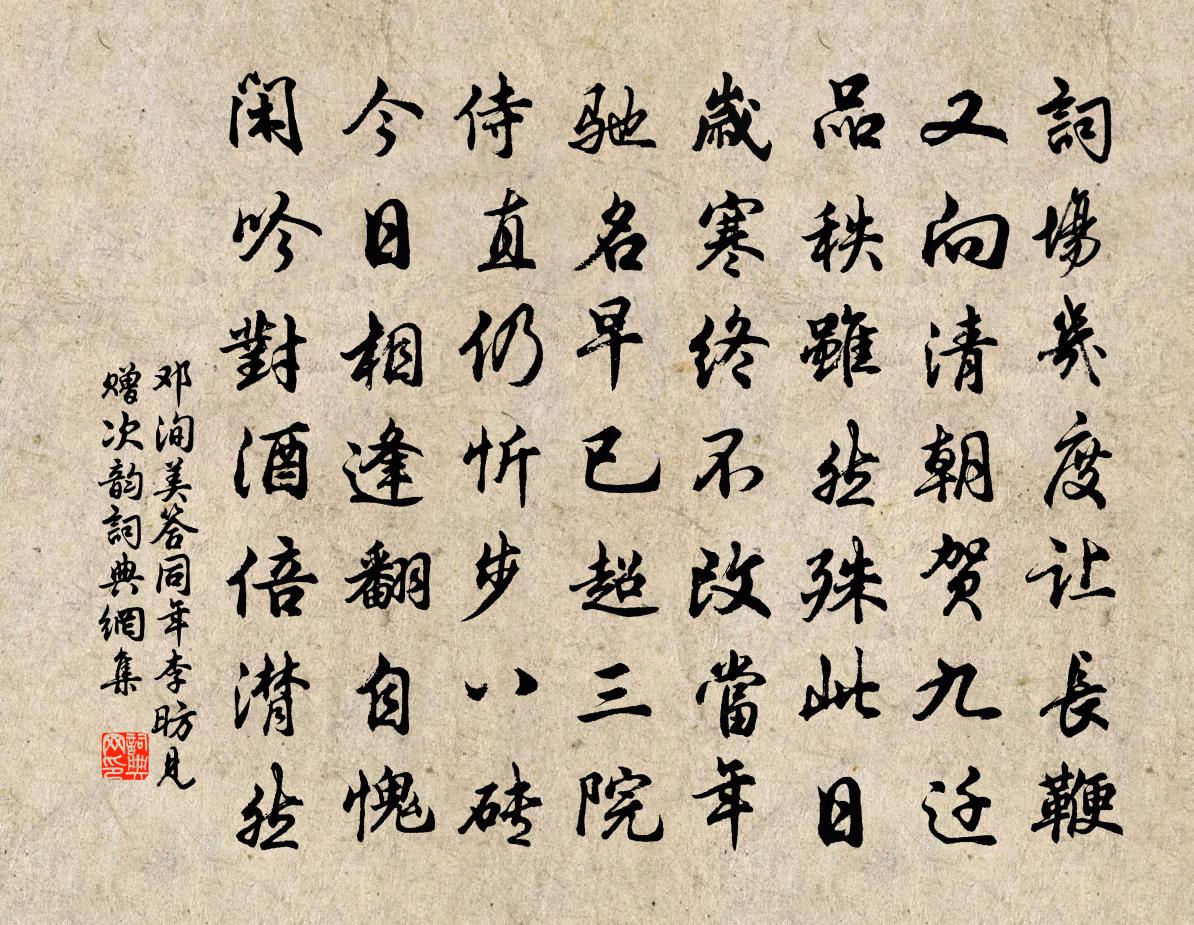 詞場幾度让長鞭
又向清朝贺九迁
品秩雖然殊此日
歲寒终不改當年
驰名早已超三院
侍直仍忻步八砖
今日相逢翻自愧
闲吟對酒倍潸然
邓洵美答同年李昉見
赠次韵詞典網集
詞典
网印